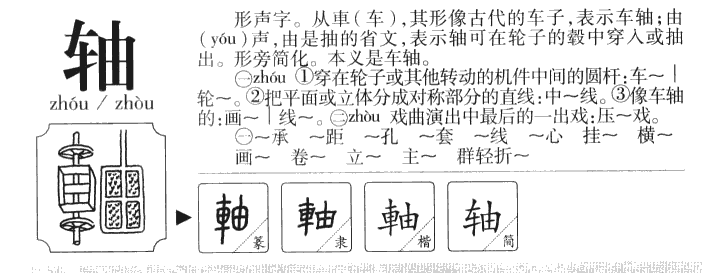 轴
zhóu / zhòu
形声字。从車(车),其形像古代的车子,表示车轴;由
(yóu)声,由是抽的省文,表示轴可在轮子的毂中穿入或抽
出。形旁简化。本义是车轴。
㊀zhóu ①穿在轮子或其他转动的机件中间的圆杆:车~｜
轮~。②把平面或立体分成对称部分的直线:中~线。③像车轴
的:画~｜线~。㊁zhòu 戏曲演出中最后的一出戏:压~戏。
㊀~承 ~距 ~孔 ~套 ~线 ~心 挂~ 横~
画~ 卷~ 立~ 主~ 群轻折~
軸 篆 軸 隶 軸 楷 轴 简